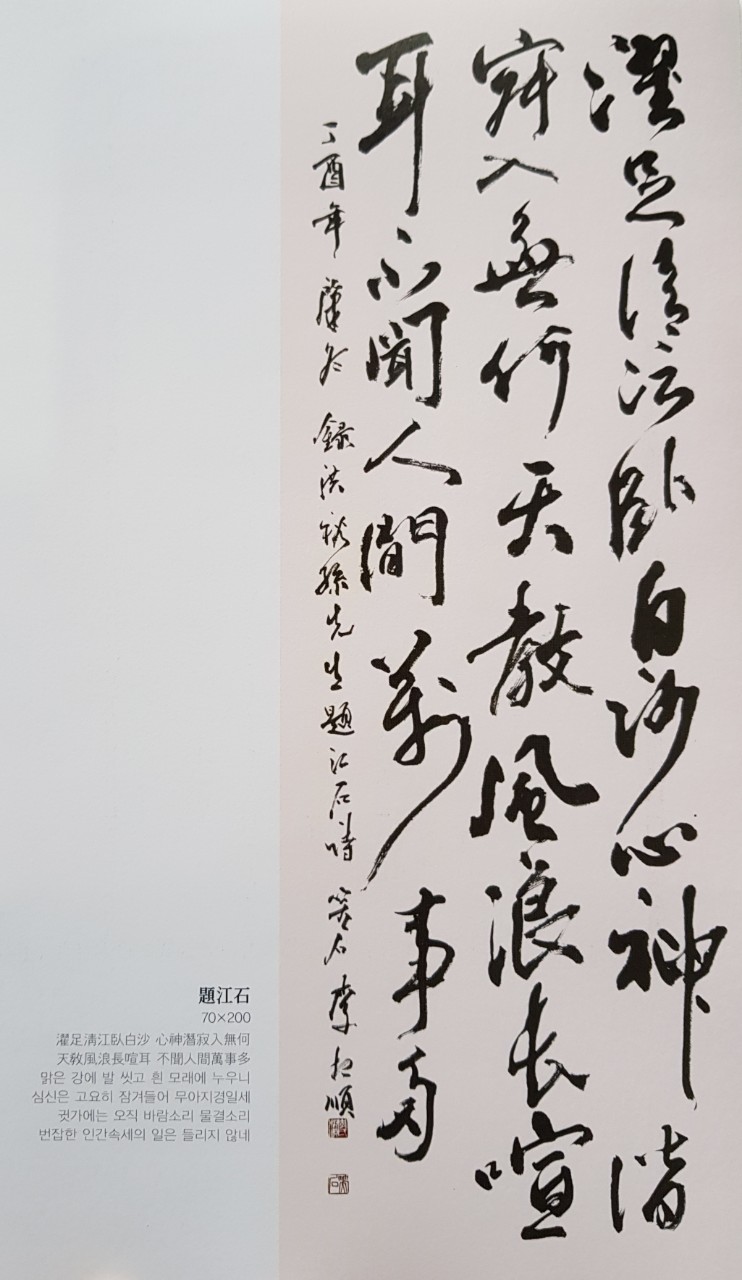 濯足清江臥白沙心神潛
寂入無何天敎風浪長喧
耳不聞人間萬事多
丁酉年 錄洪裕孫先生題江石詩 笑石 李相順
題江石
70×200
濯足淸江臥白沙 心神潛寂入無何
天敎風浪長喧耳 不聞人間萬事多
맑은 강에 발 씻고 흰 모래에 누우니
심신은 고요히 잠겨들어 무아지경일세
귓가에는 오직 바람소리 물결소리
번잡한 인간속세의 일은 들리지 않네